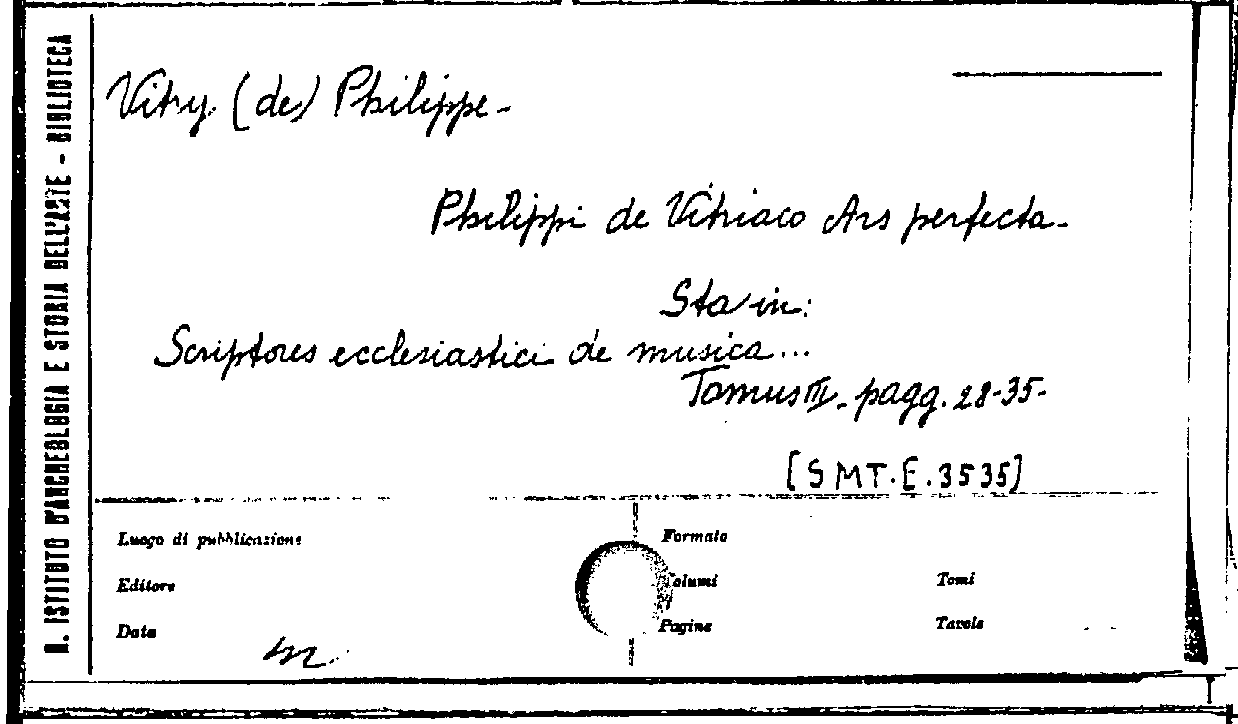 R. ISTITUTO D'ARCHEOLOGIA E STORIA DELL'ARTE - BIBLIOTECA
Vitry (de) Philippe-
Philippi de Vitriaco Ars perfecta-
Sta in:
Scriptores ecclesiastici de musica...
Tomus III- pagg. 28-35-
[SMT.E.3535]
Luogo di pubblicazione
Formato
Editore
Volumi
Tomi
Data
Pagine
Tavole